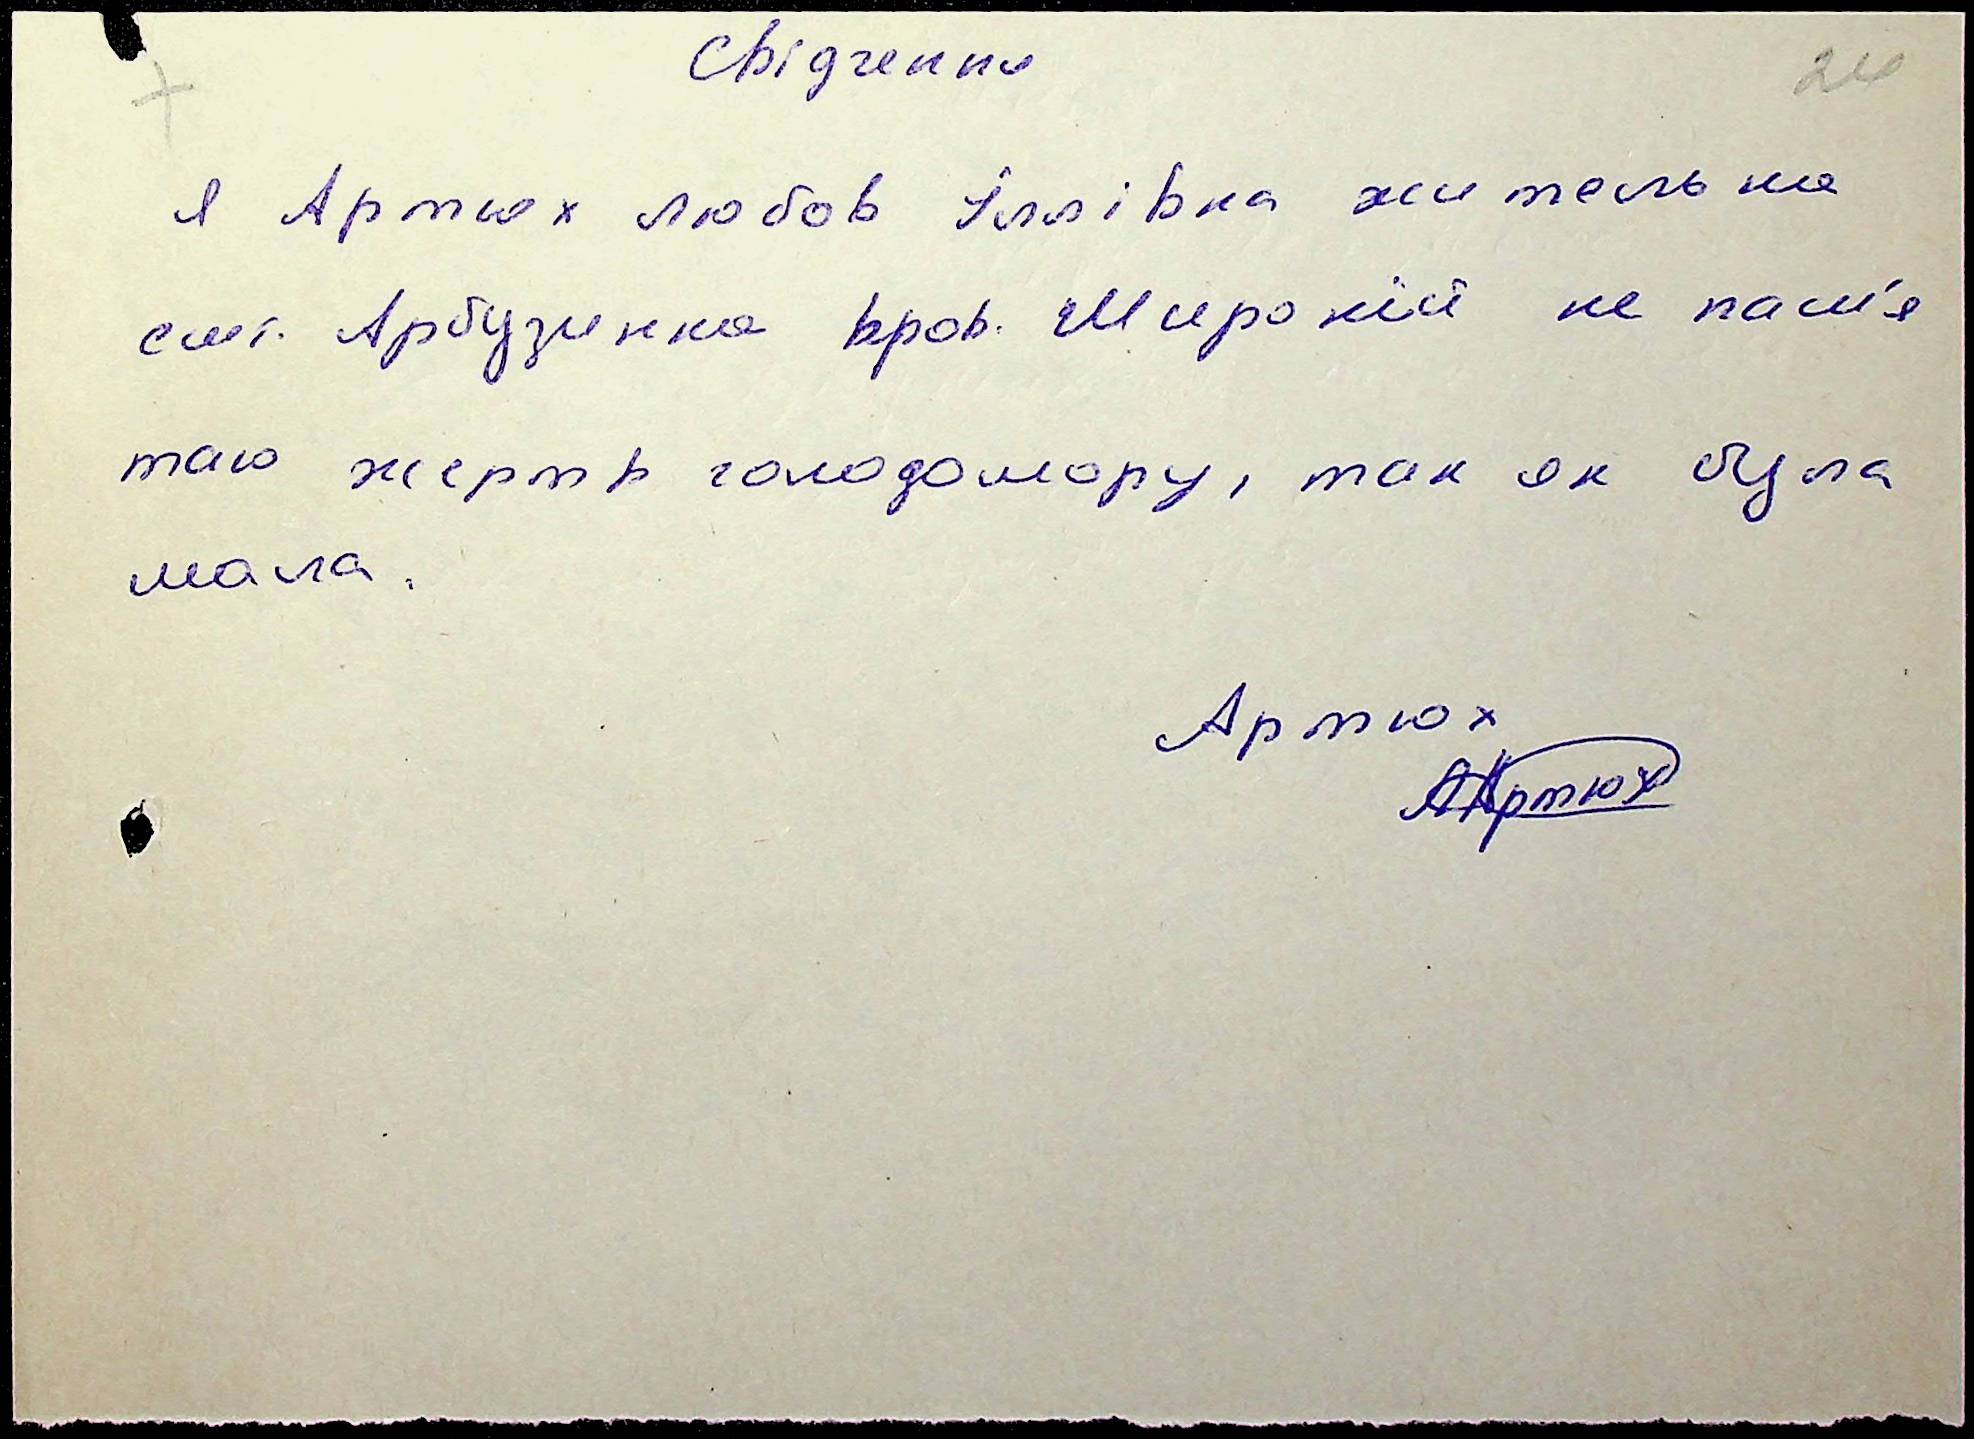 Свідчення
24
Я Артюх Любов Іллівна жителька
смт. Арбузинка пров. Широкій не пам'я
таю жертв голодомору, так як була
мала.
Артюх
Артюх